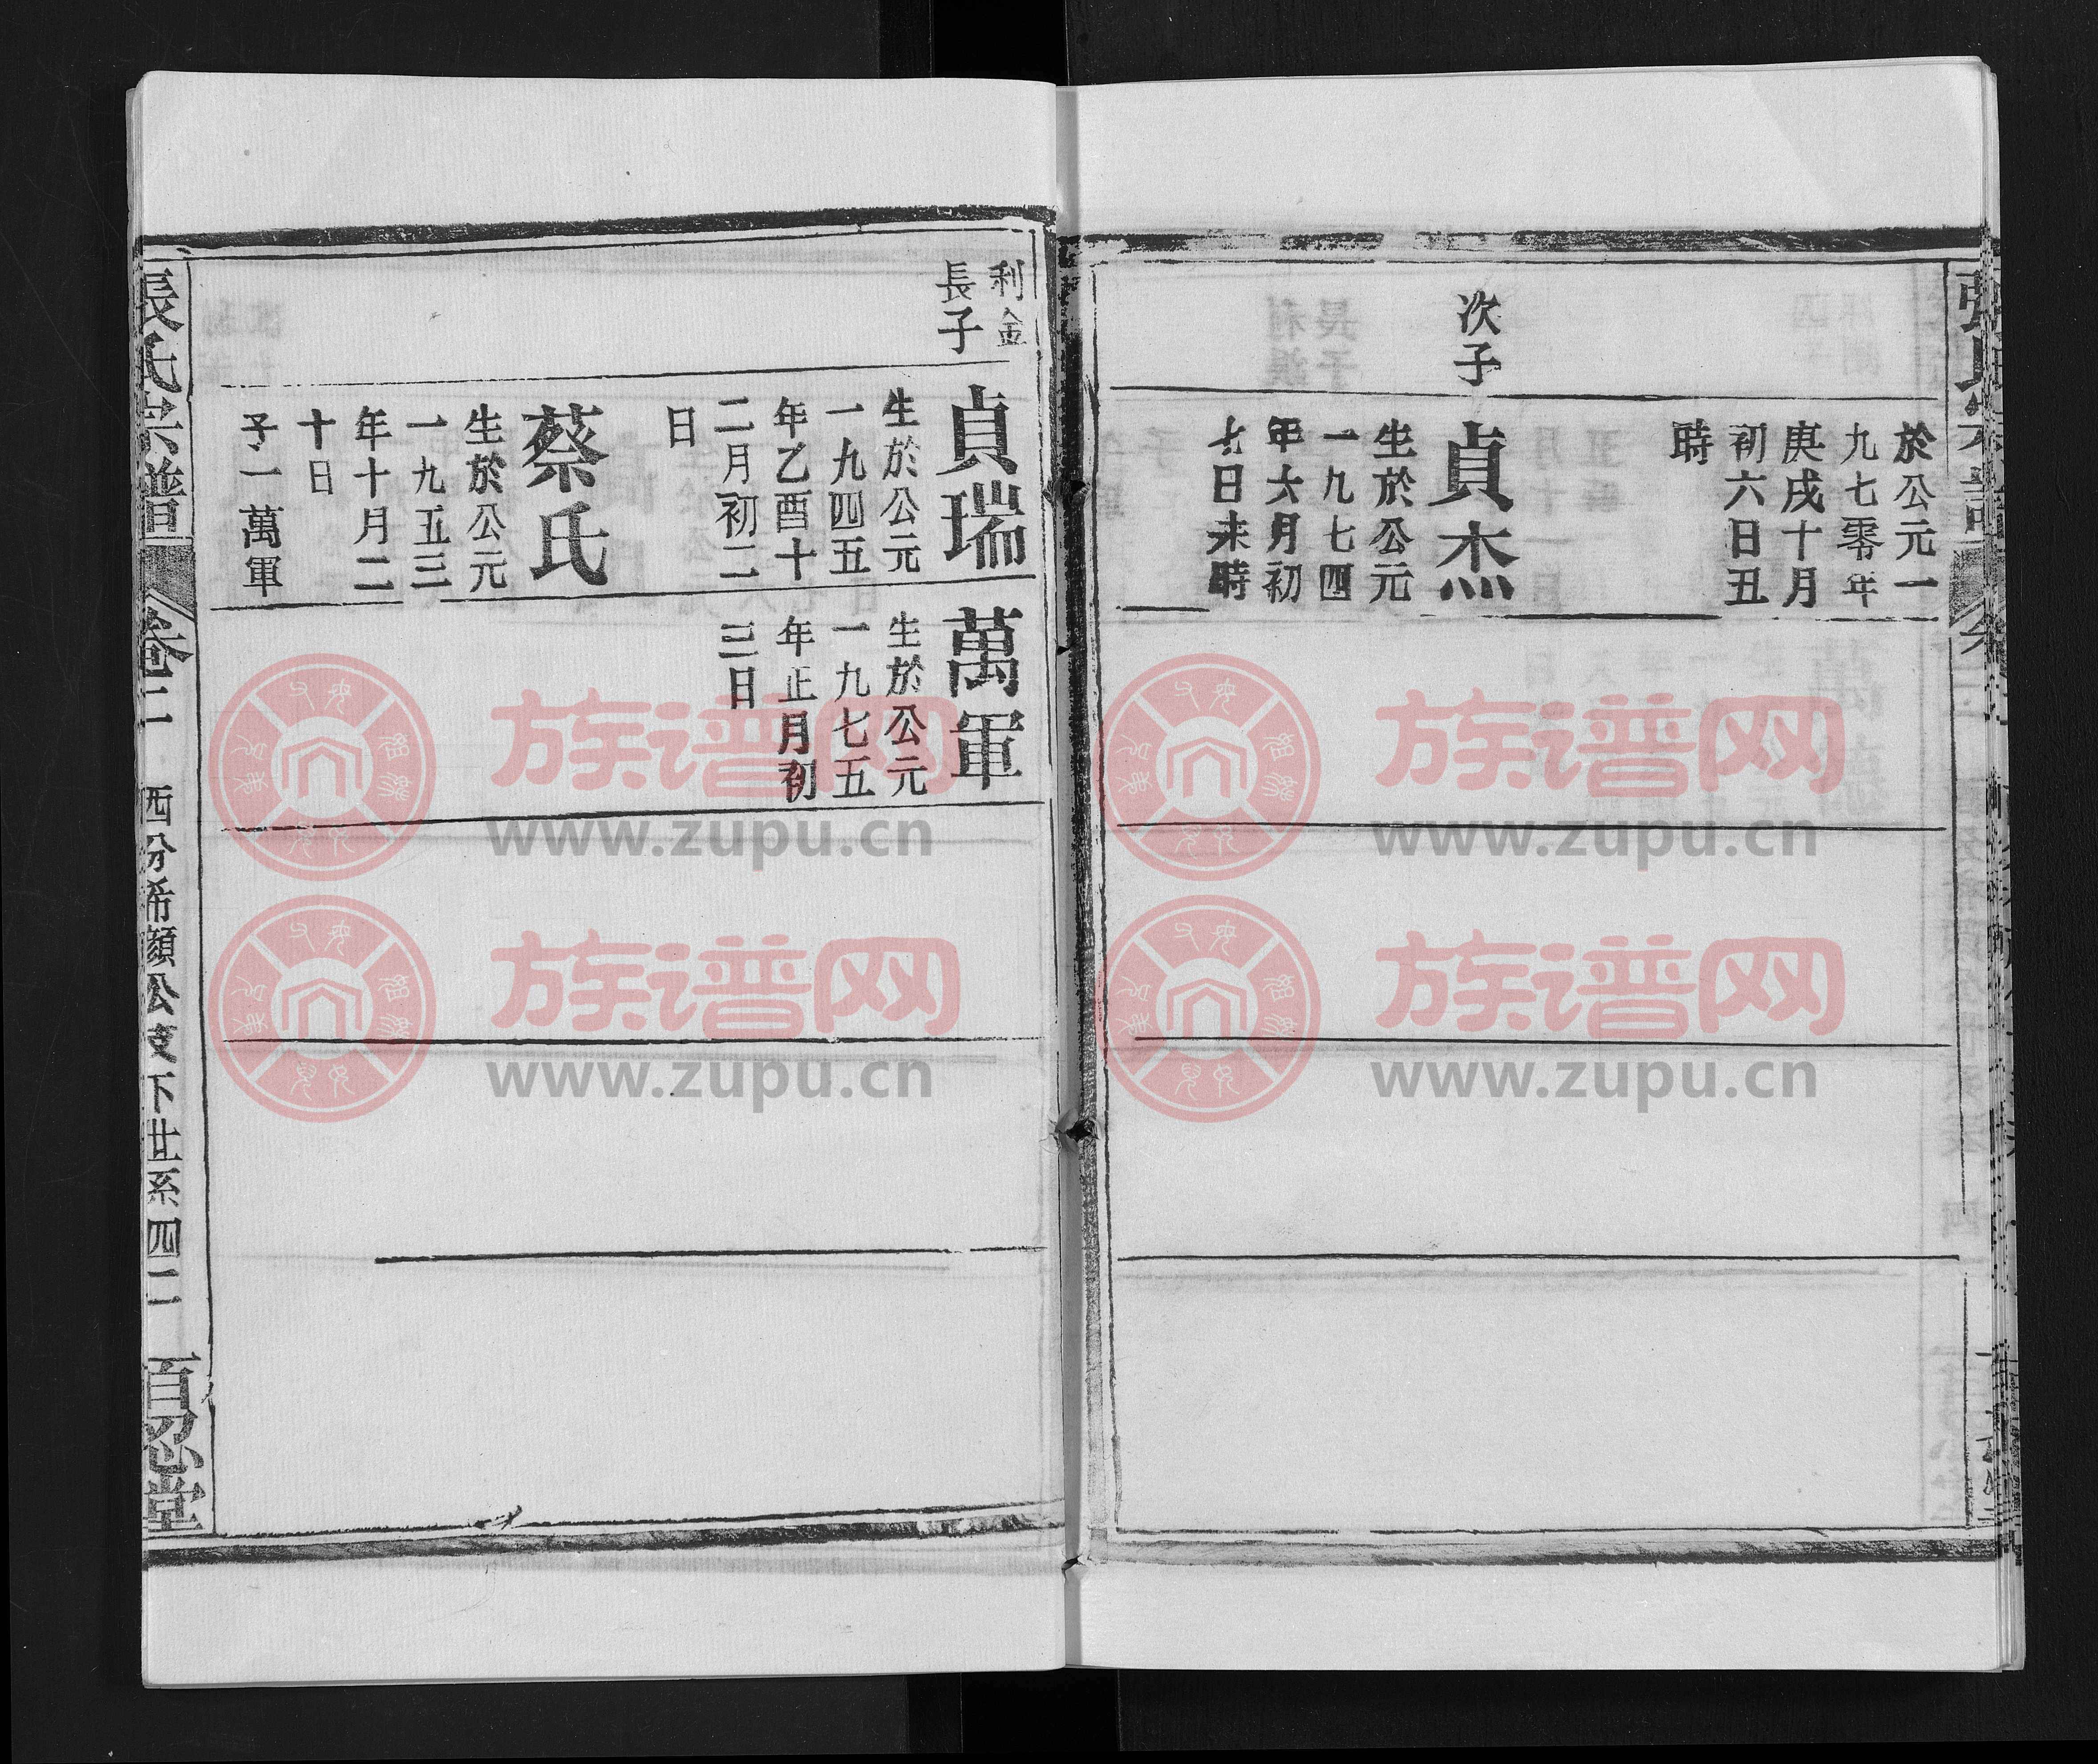 於公元一
九七零年
庚戌十月
初六日丑
時
次子
貞杰
生於公元
一九七四
年六月初
七日未時
利金
長子
貞瑞
生於公元
一九四五
年乙酉十
二月初二
日
蔡氏
生於公元
一九五三
年十月二
十日
子一萬軍
萬軍
生於公元
一九七五
年正月初
三日
張氏宗譜
卷二
西分希顔公支下世系四二
百忍堂
族谱网
www.zupu.cn
族谱网
www.zupu.cn
族谱网
www.zupu.cn
族谱网
www.zupu.cn